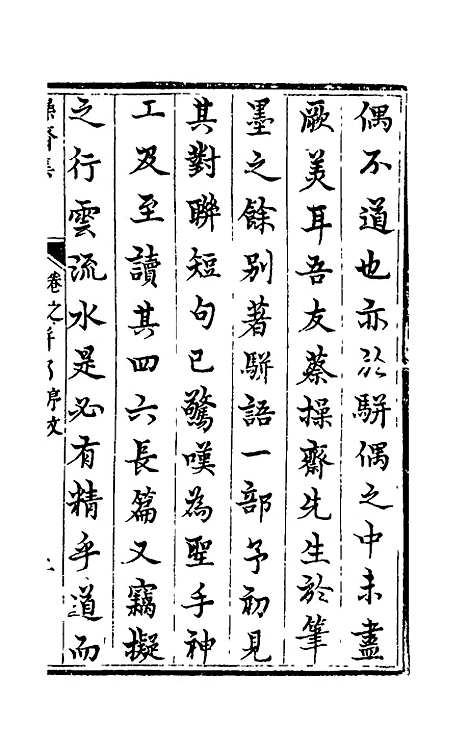 偶不道也亦於駢偶之中未盡
厥美耳吾友蔡操齋先生於筆
墨之餘別著駢語一部予初見
其對聯短句已驚嘆為聖手神
工及至讀其四六長篇又竊擬
之行雲流水是必有精乎道而
操齋集
卷之 序文